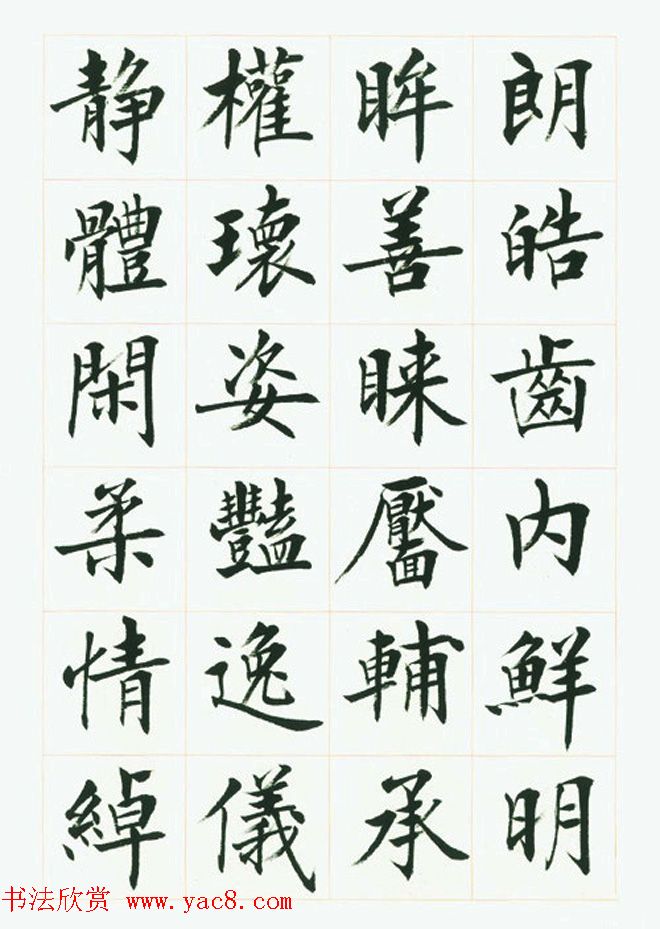 朗皓齒内鮮明
眸善睞靨輔承
權瓌姿豔逸儀
静體閑柔情綽
书法欣赏 www.yac8.com